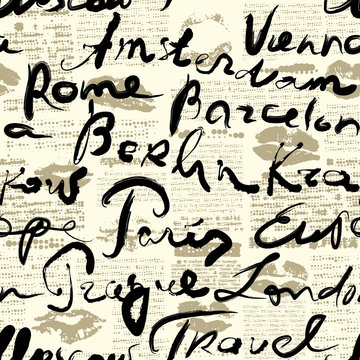 Moscow
Vienna
a Amsterdam
Rome
Barcelon
a Berlin Kra
kow
ope Paris Euro
n Prague London
Moscow Travel